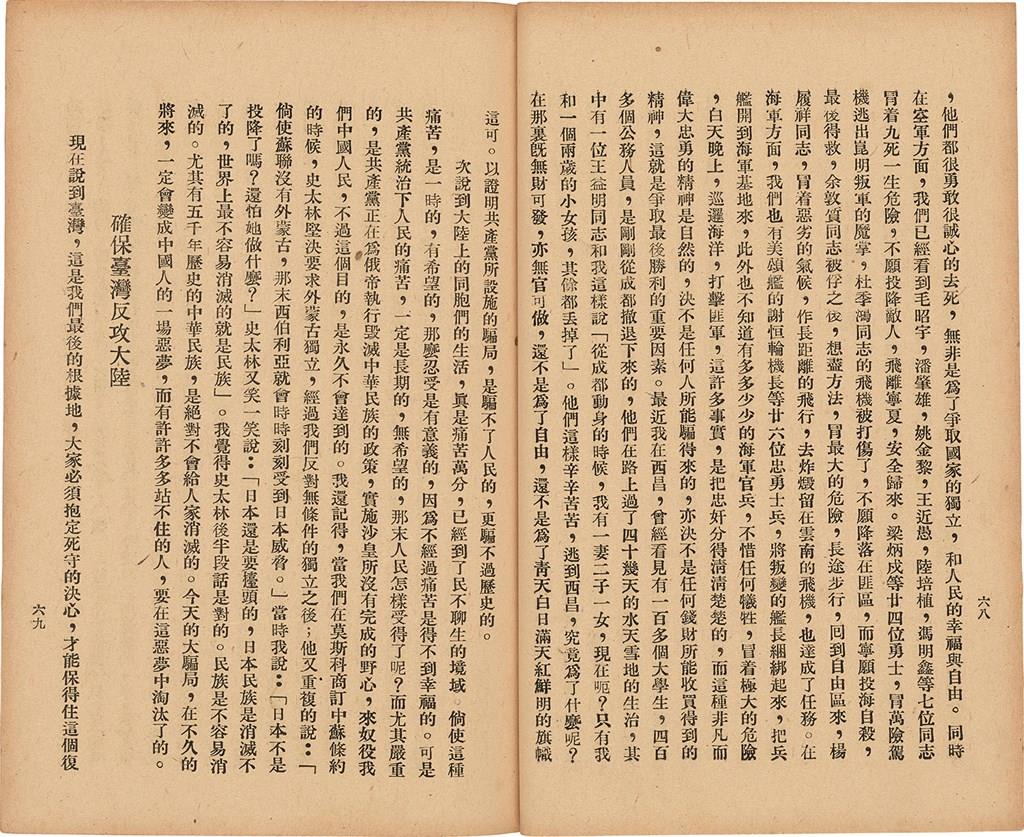 六八
，他們都很勇敢很誠心的去死，無非是爲了爭取國家的獨立，和人民的幸福與自由。同時
在空軍方面，我們已經看到毛昭宇，潘肇雄，姚金黎，王近愚，陸培植，馮明鑫等七位同志
冒着九死一生危險，不願投降敵人，飛離寧夏，安全歸來。梁炳成等廿四位勇士，冒萬險駕
機逃出崑明叛軍的魔掌，杜季鴻同志的飛機被打傷了，不願降落在匪區，而寧願投海自殺，
最後得救，余敦質同志被俘之後，想盡方法，冒最大的危險，長途步行，囘到自由區來，楊
履祥同志，冒着惡劣的氣候，作長距離的飛行，去炸燬留在雲南的飛機，也達成了任務。在
海軍方面，我們也有美頌艦的謝恒輪機長等廿六位忠勇士兵，將叛變的艦長綑綁起來，把兵
艦開到海軍基地來，此外也不知道有多多少少的海軍官兵，不惜任何犧牲，冒着極大的危險
，白天晚上，巡邏海洋，打擊匪軍，這許多事實，是把忠奸分得淸淸楚楚的，而這種非凡而
偉大忠勇的精神是自然的，決不是任何人所能騙得來的，亦決不是任何錢財所能收買得到的
精神，這就是爭取最後勝利的重要因素。最近我在西昌，曾經看見有一百多個大學生，四百
多個公務人員，是剛剛從成都撤退下來的，他們在路上過了四十幾天的水天雪地的生治，其
中有一位王益明同志和我這樣說「從成都動身的時候，我有一妻二子一女，現在呃？只有我
和一個兩歲的小女孩，其餘都丟掉了」。他們這樣辛辛苦苦，逃到西昌，究竟爲了什麽呢？
在那裏旣無財可發，亦無官可做，還不是爲了自由，還不是爲了靑天白日滿天紅鮮明的旗幟
這可。以證明共產黨所設施的騙局，是騙不了人民的，更騙不過歷史的。
次說到大陸上的同胞們的生活，眞是痛苦萬分，已經到了民不聊生的境域。倘使這種
痛苦，是一時的，有希望的，那麽忍受是有意義的，因爲不經過痛苦是得不到幸福的。可是
共產黨統治下人民的痛苦，一定是長期的，無希望的，那末人民怎樣受得了呢？而尤其嚴重
的，是共產黨正在爲俄帝執行毀滅中華民族的政策，實施沙皇所沒有完成的野心，來奴役我
們中國人民，不過這個目的，是永久不會達到的。我還記得，當我們在莫斯科商訂中蘇條約
的時候，史太林堅決要求外蒙古獨立，經過我們反對無條件的獨立之後；他又重複的說：「
倘使蘇聯沒有外蒙古，那末西伯利亞就會時時刻刻受到日本威脅。」當時我說：「日本不是
投降了嗎？還怕她做什麽？」史太林又笑一笑說：「日本還是要擡頭的，日本民族是消滅不
了的，世界上最不容易消滅的就是民族」。我覺得史太林後半段話是對的。民族是不容易消
滅的。尤其有五千年歷史的中華民族，是絕對不會給人家消滅的。今天的大騙局，在不久的
將來，一定會變成中國人的一場惡夢，而有許許多多站不住的人，要在這惡夢中淘汰了的。
確保臺灣反攻大陸
現在說到臺灣，這是我們最後的根據地，大家必須抱定死守的決心，才能保得住這個復
六九